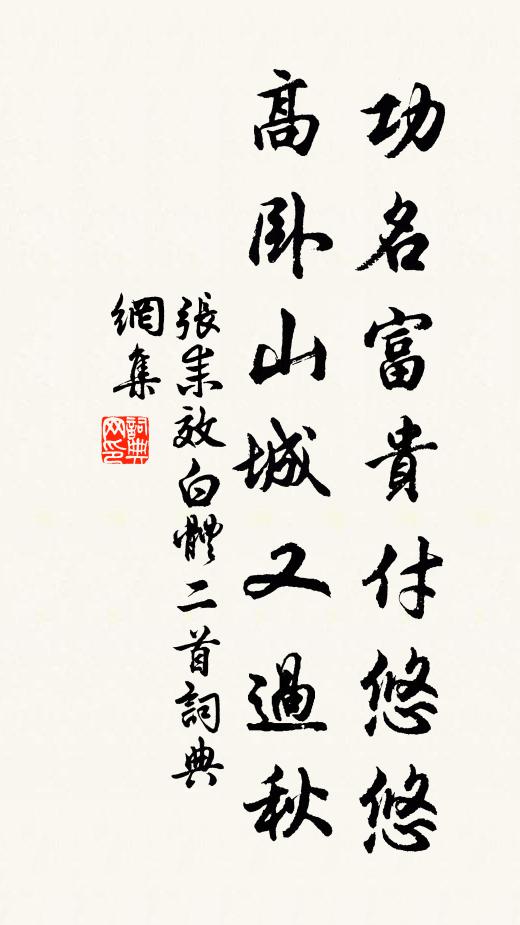 功名富貴付悠悠
高卧山城又過秋
張耒效白體二首詞典
網集
詞典
网印